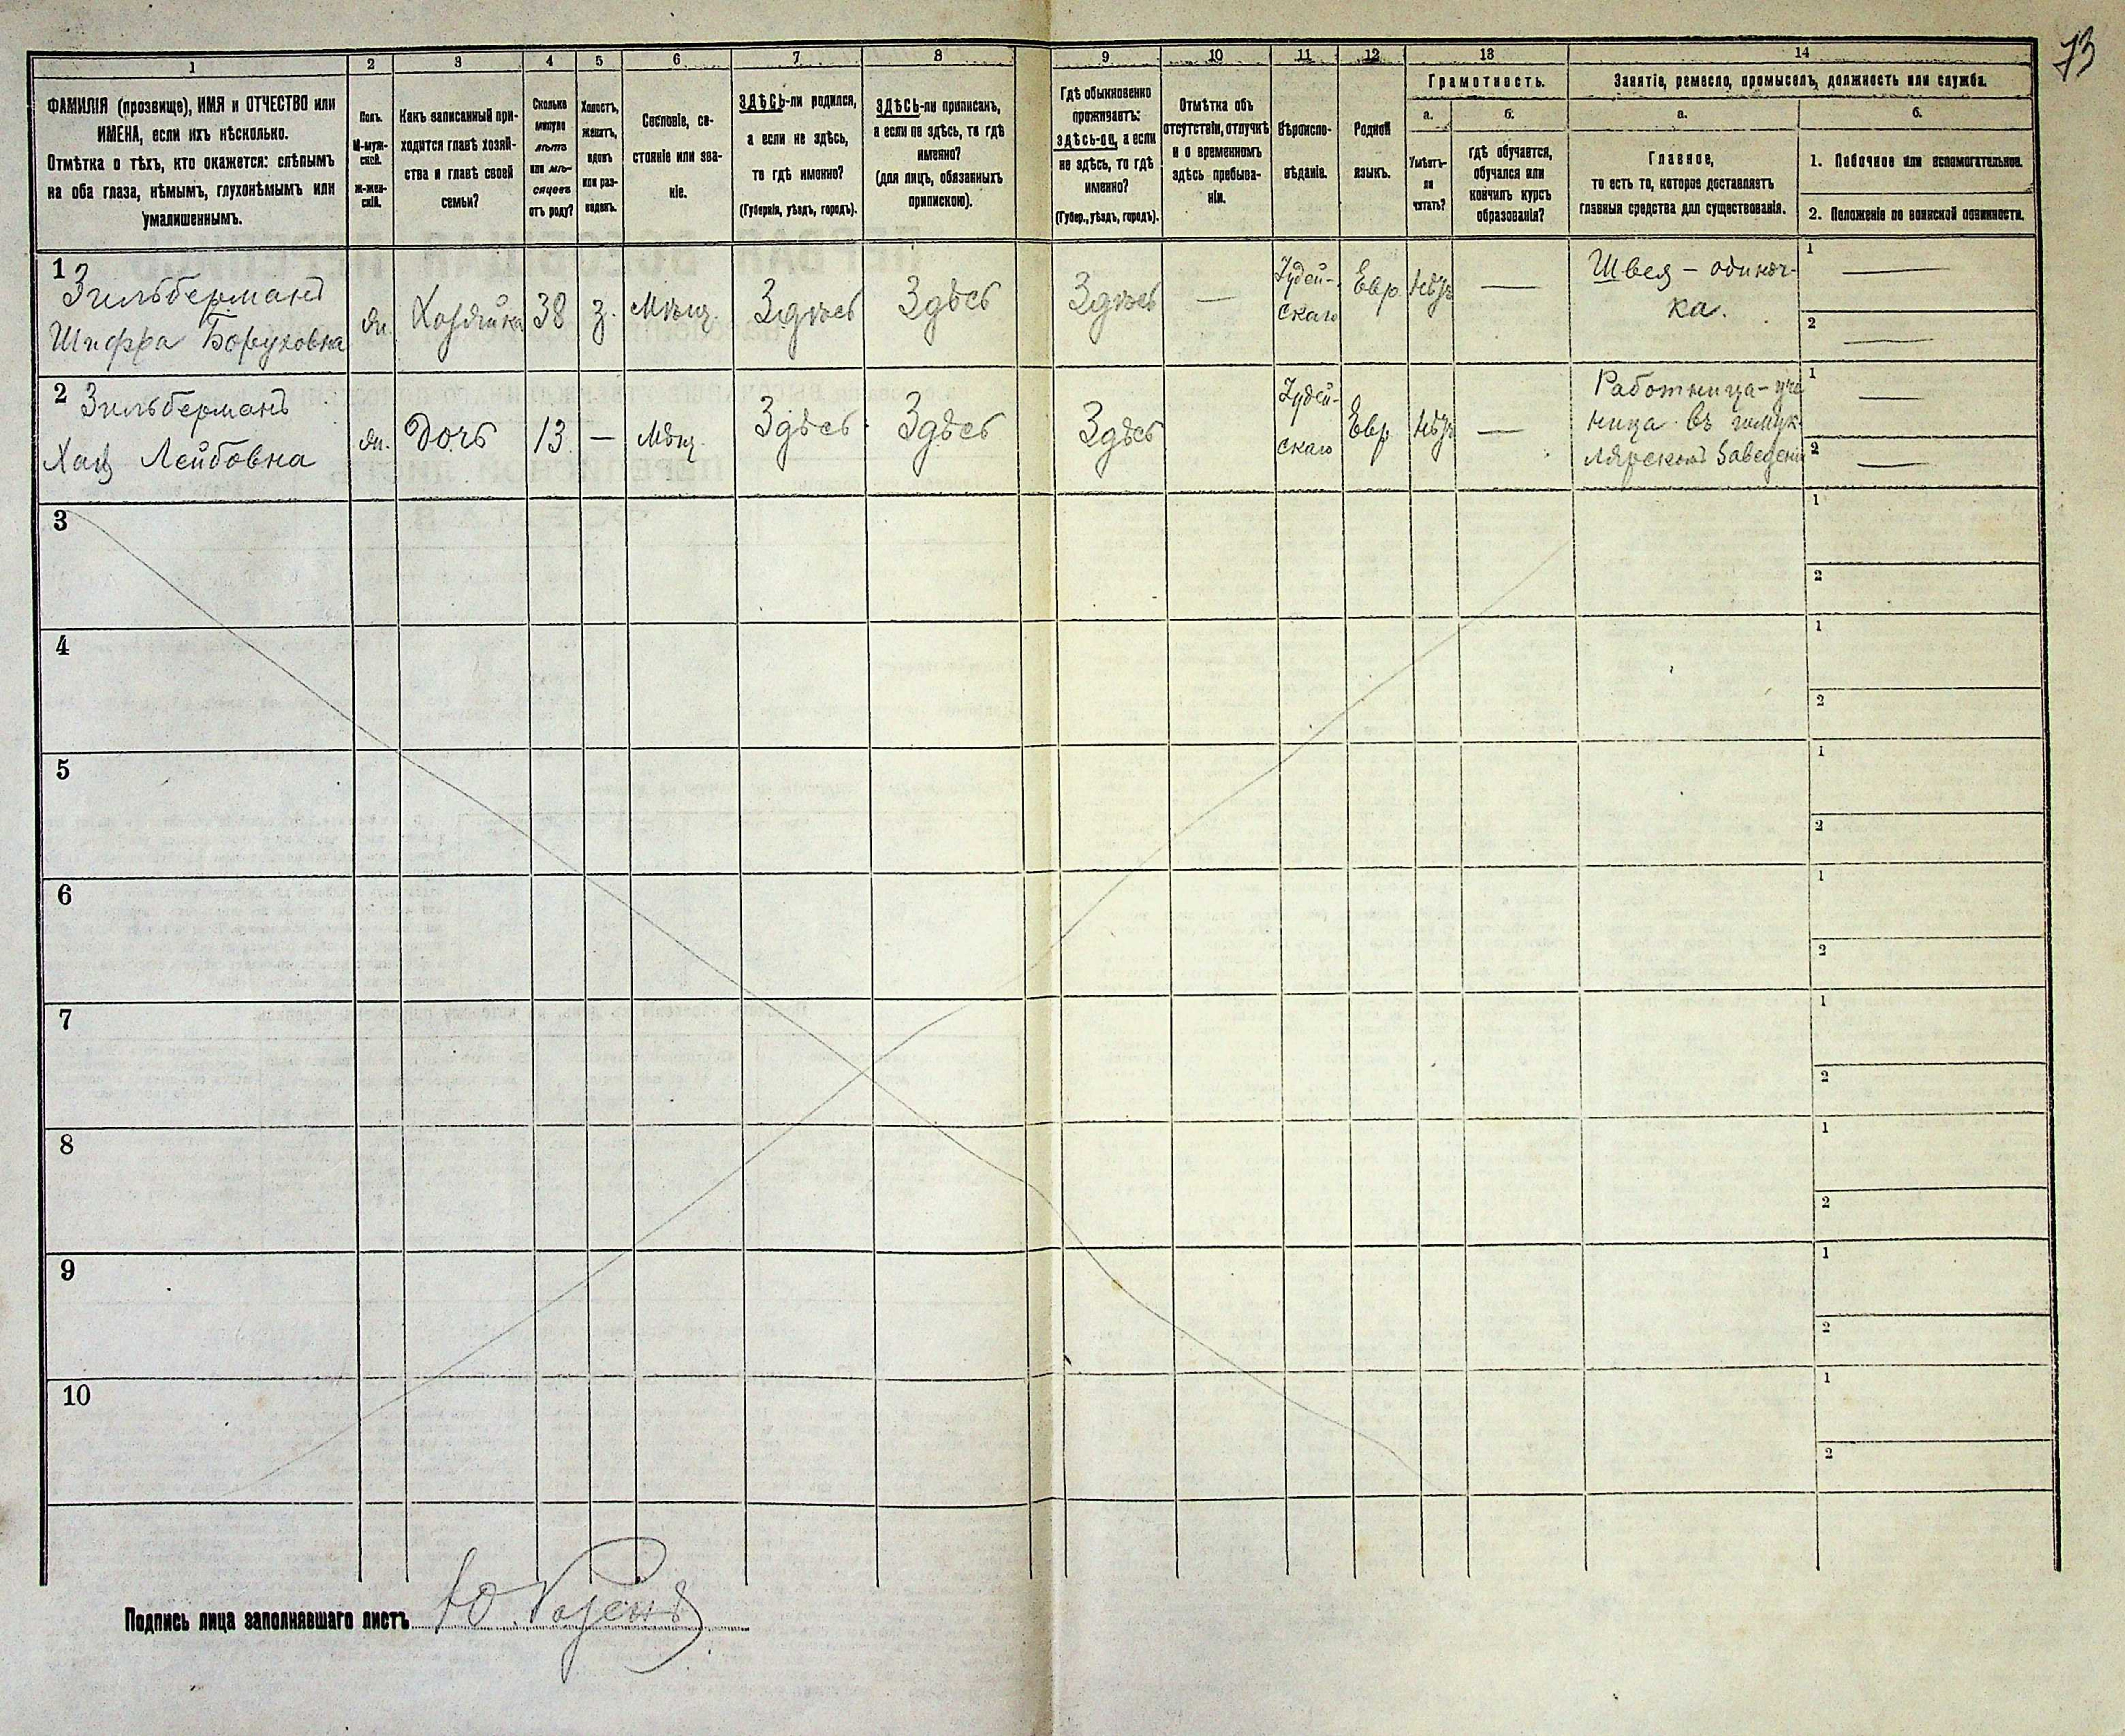 73
1 2 3 4 5 6 7 8 9 10 11 12 13 14
ФАМИЛІЯ (прозвище), ИМЯ и ОТЧЕСТВО или
ИМЕНА, если ихъ нѣсколько.
Отмѣтка о тѣхъ, кто окажется: слѣпымъ
на оба глаза, нѣмымъ, глухонѣмымъ или
умалишеннымъ.
Полъ.
М-муж-
ской.
Ж-жен-
скій.
Какъ записанный при-
ходится главѣ хозяй-
ства и главѣ своей
семьи?
Сколько
минуло
лѣтъ
или мѣ-
сяцевъ
отъ роду?
Холостъ,
женатъ,
вдовъ
или раз-
веденъ.
Сословіе, со-
стояніе или зва-
ніе.
ЗДѢСЬ-ли родился,
а если не здѣсь,
то гдѣ именно?
(Губернія, уѣздъ, городъ).
ЗДѢСЬ-ли приписанъ,
а если не здѣсь, то гдѣ
именно?
(для лицъ, обязанныхъ
припискою).
Гдѣ обыкновенно
проживаетъ:
здѣсь-ли, а если
не здѣсь, то гдѣ
именно?
(Губер., уѣздъ, городъ).
Отмѣтка объ
отсутствіи, отлучкѣ
и о временномъ
здѣсь пребыва-
ніи.
Вѣроиспо-
вѣданіе.
Родной
языкъ.
Грамотность.
а.
Умѣетъ-
ли
читать?
б.
гдѣ обучается,
обучался или
кончилъ курсъ
образованія?
Занятіе, ремесло, промыселъ, должность или служба.
а.
Главное,
то есть то, которое доставляетъ
главныя средства для существованія.
б.
1. Побочное или вспомогательное.
2. Положеніе по воинской повинности.
1
Зильберманъ
Шифра Боруховна
Ж.
Хозяйка
38
З.
Мѣщ.
Здѣсь
Здѣсь
Здѣсь
—
Іудей-
скаго
Евр.
Нѣтъ
—
Швея – одиноч-
ка.
1 —
2 —
2
Зильберманъ
Хая Лейбовна
Ж.
Дочь
13
—
Мѣщ.
Здѣсь
Здѣсь
Здѣсь
Іудей-
скаго
Евр
Нѣтъ
—
Работница – уче
ница въ
заведені
1 —
2 —
3
1
2
4
1
2
5
1
2
6
1
2
7
1
2
8
1
2
9
1
2
10
1
2
Подпись лица заполнявшаго листъ Ю. Розенъ